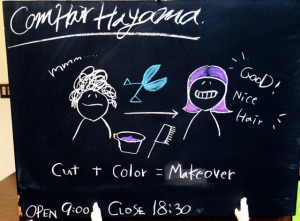 ComHair Hayama.
mmm....
GooD!
Nice
Hair
Cut + Color = Makeover
OPEN 9:00 CLOSE 18:30